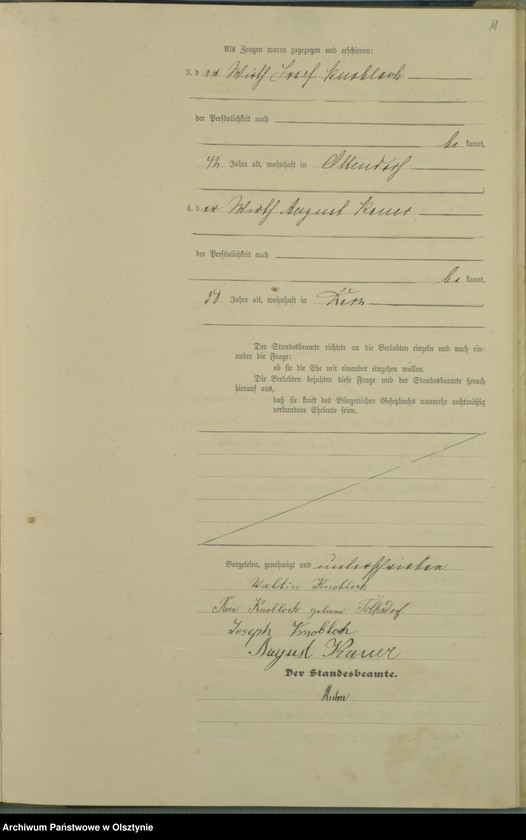 11
Als Zeugen waren zugezogen und erschienen:
3. der Wirth Josef Knobloch
der Persönlichkeit nach
be kannt,
42 Jahre alt, wohnhaft in
4. der Wirth August Kauer
der Persönlichkeit nach
be kannt,
Jahre alt, wohnhaft in
Der Standesbeamte richtete an die Verlobten einzeln und nach ein-
ander die Frage:
ob sie die Ehe mit einander eingehen wollen.
Die Verlobten bejahten diese Frage und der Standesbeamte sprach
hierauf aus,
daß sie kraft des Bürgerlichen Gesetzbuchs nunmehr rechtmäßig
verbundene Eheleute seien.
Vorgelesen, genehmigt und unterschrieben.
Knobloch
Knobloch geborene
Joseph Knobloch
August Kauer
Der Standesbeamte.
Archiwum Państwowe w Olsztynie